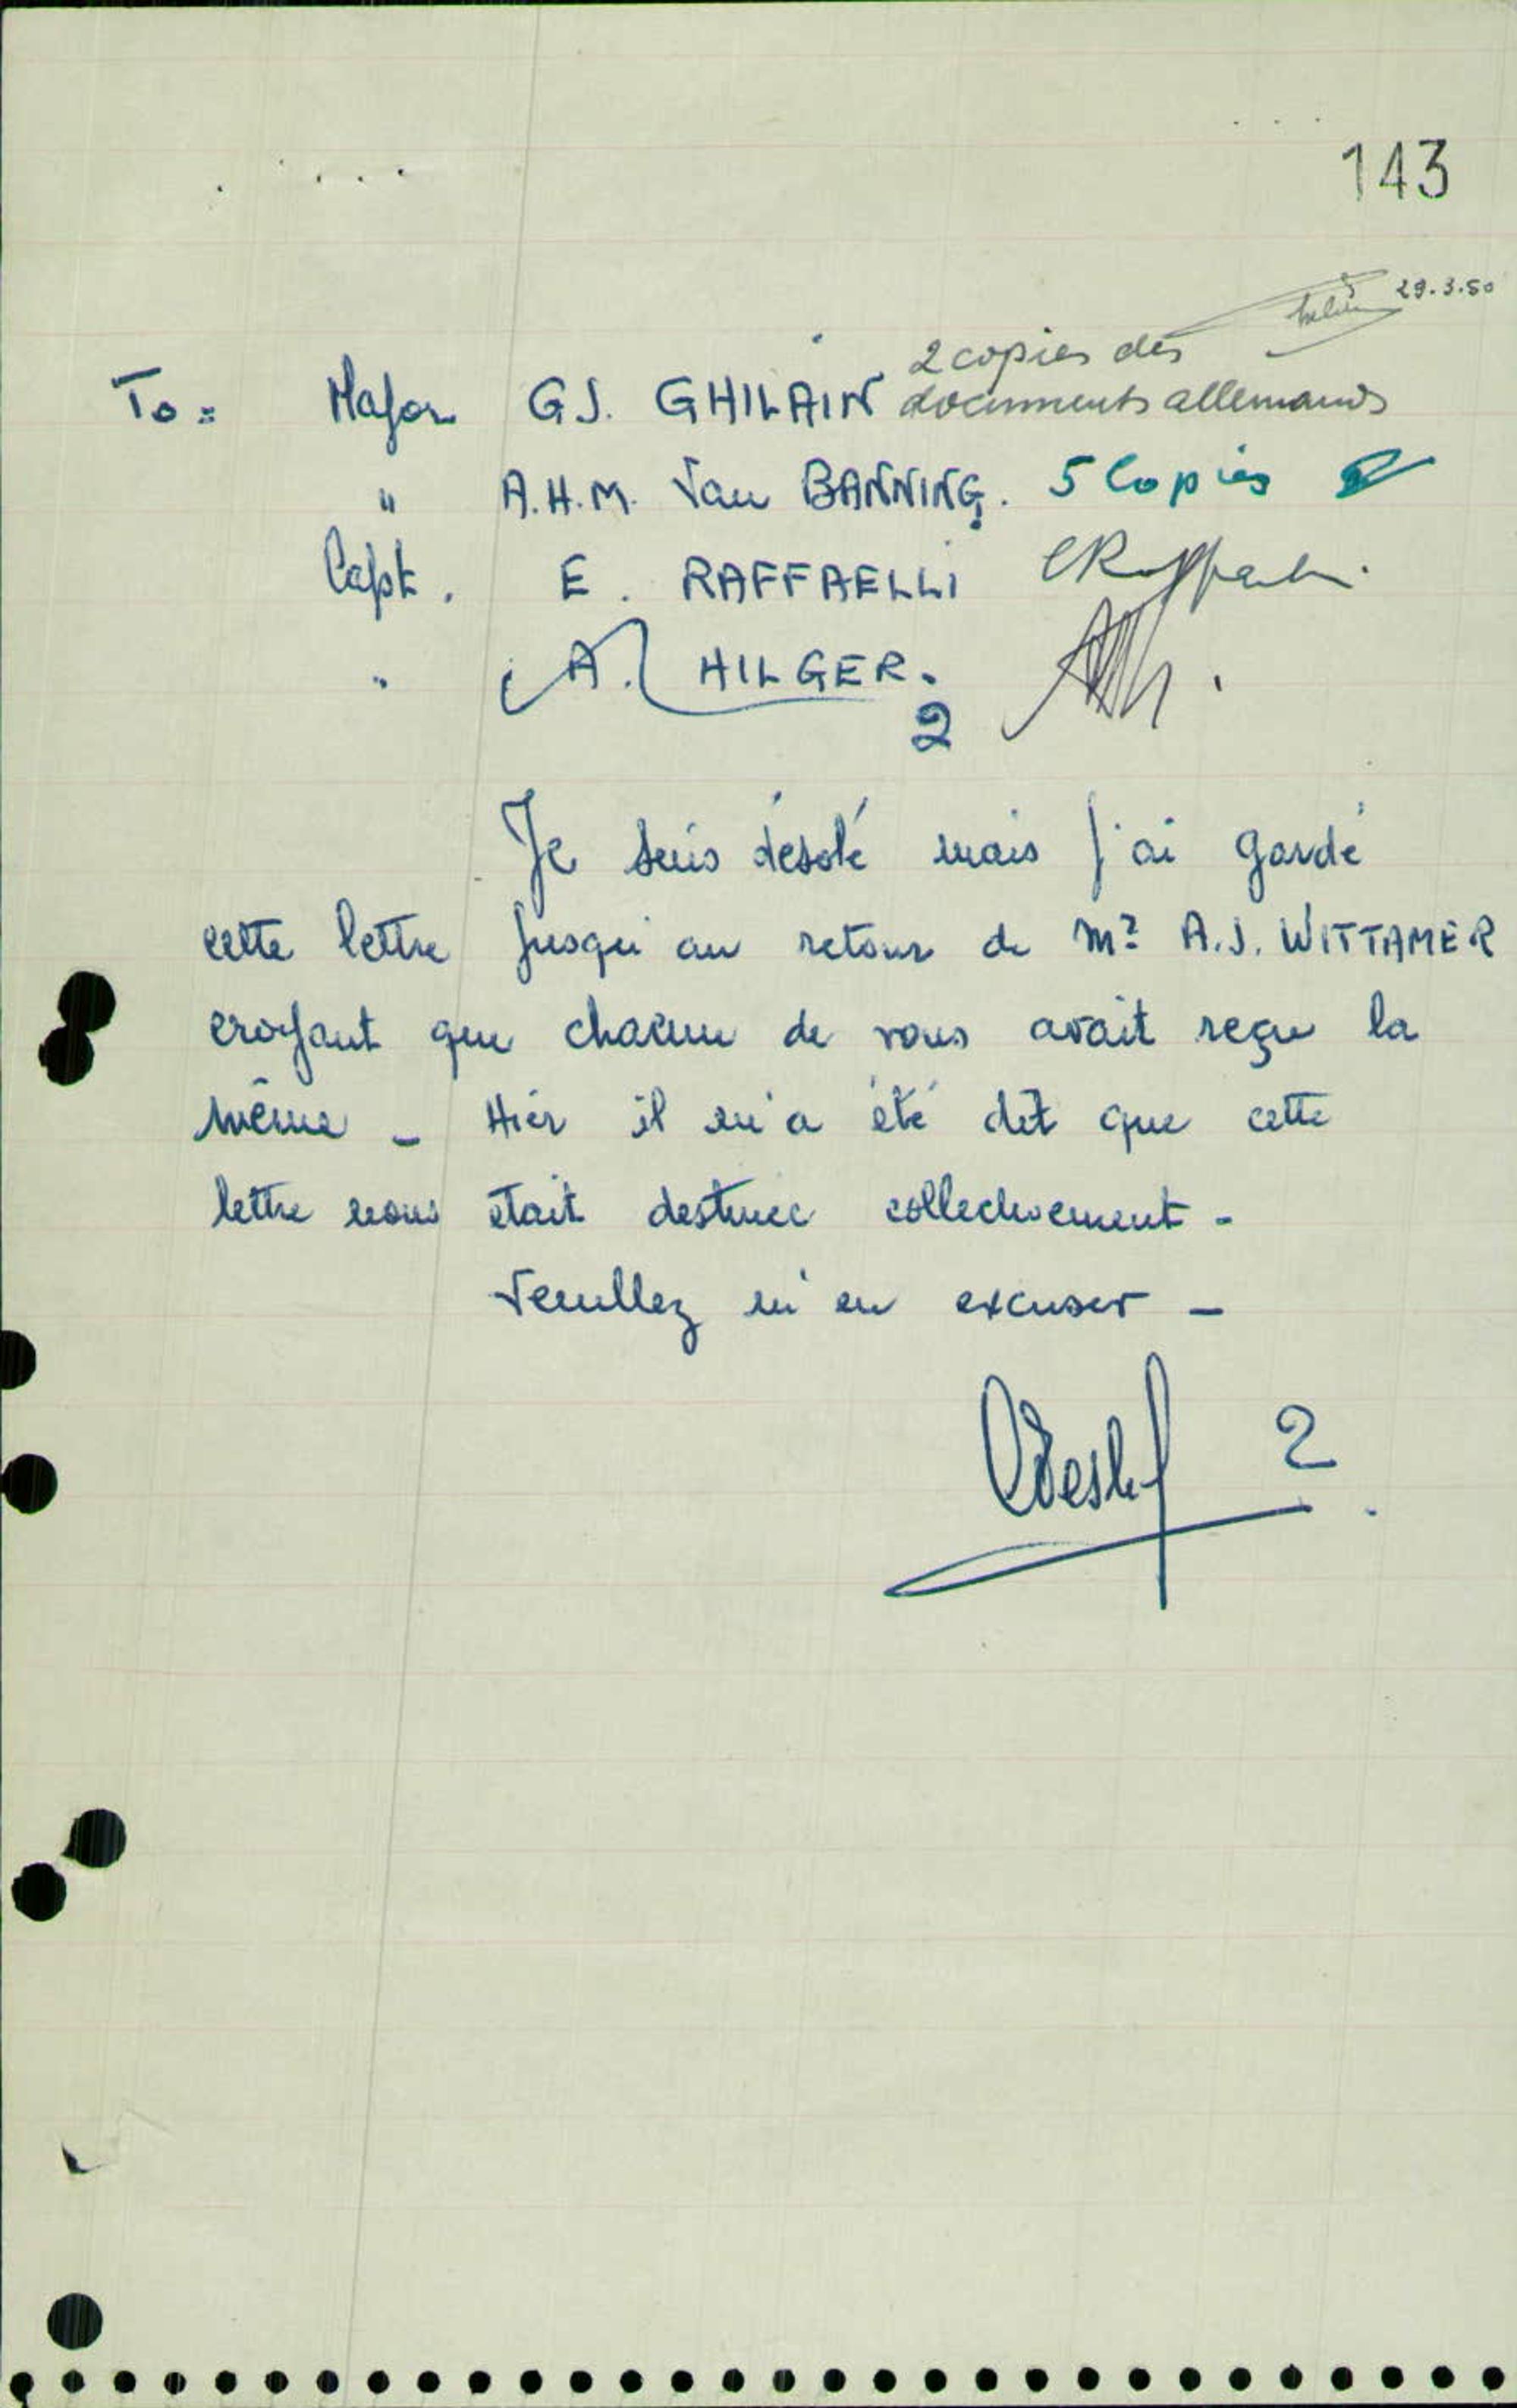 143
29.3.50
2 copies des
To: Major GJ. GHILAIN documents allemands
" A.H.M. Van BANNING. 5 Copies
Capt. E. RAFFAELLI
" A. HILGER.
2
Je suis désolé mais j'ai gardé
cette lettre jusqu'au retour de Mr A.J. WITTAMER
croyant que chacun de vous avait reçu la
même - Hier il m'a été dit que cette
lettre nous était destinée collectivement -
Veuillez m'en excuser -
2